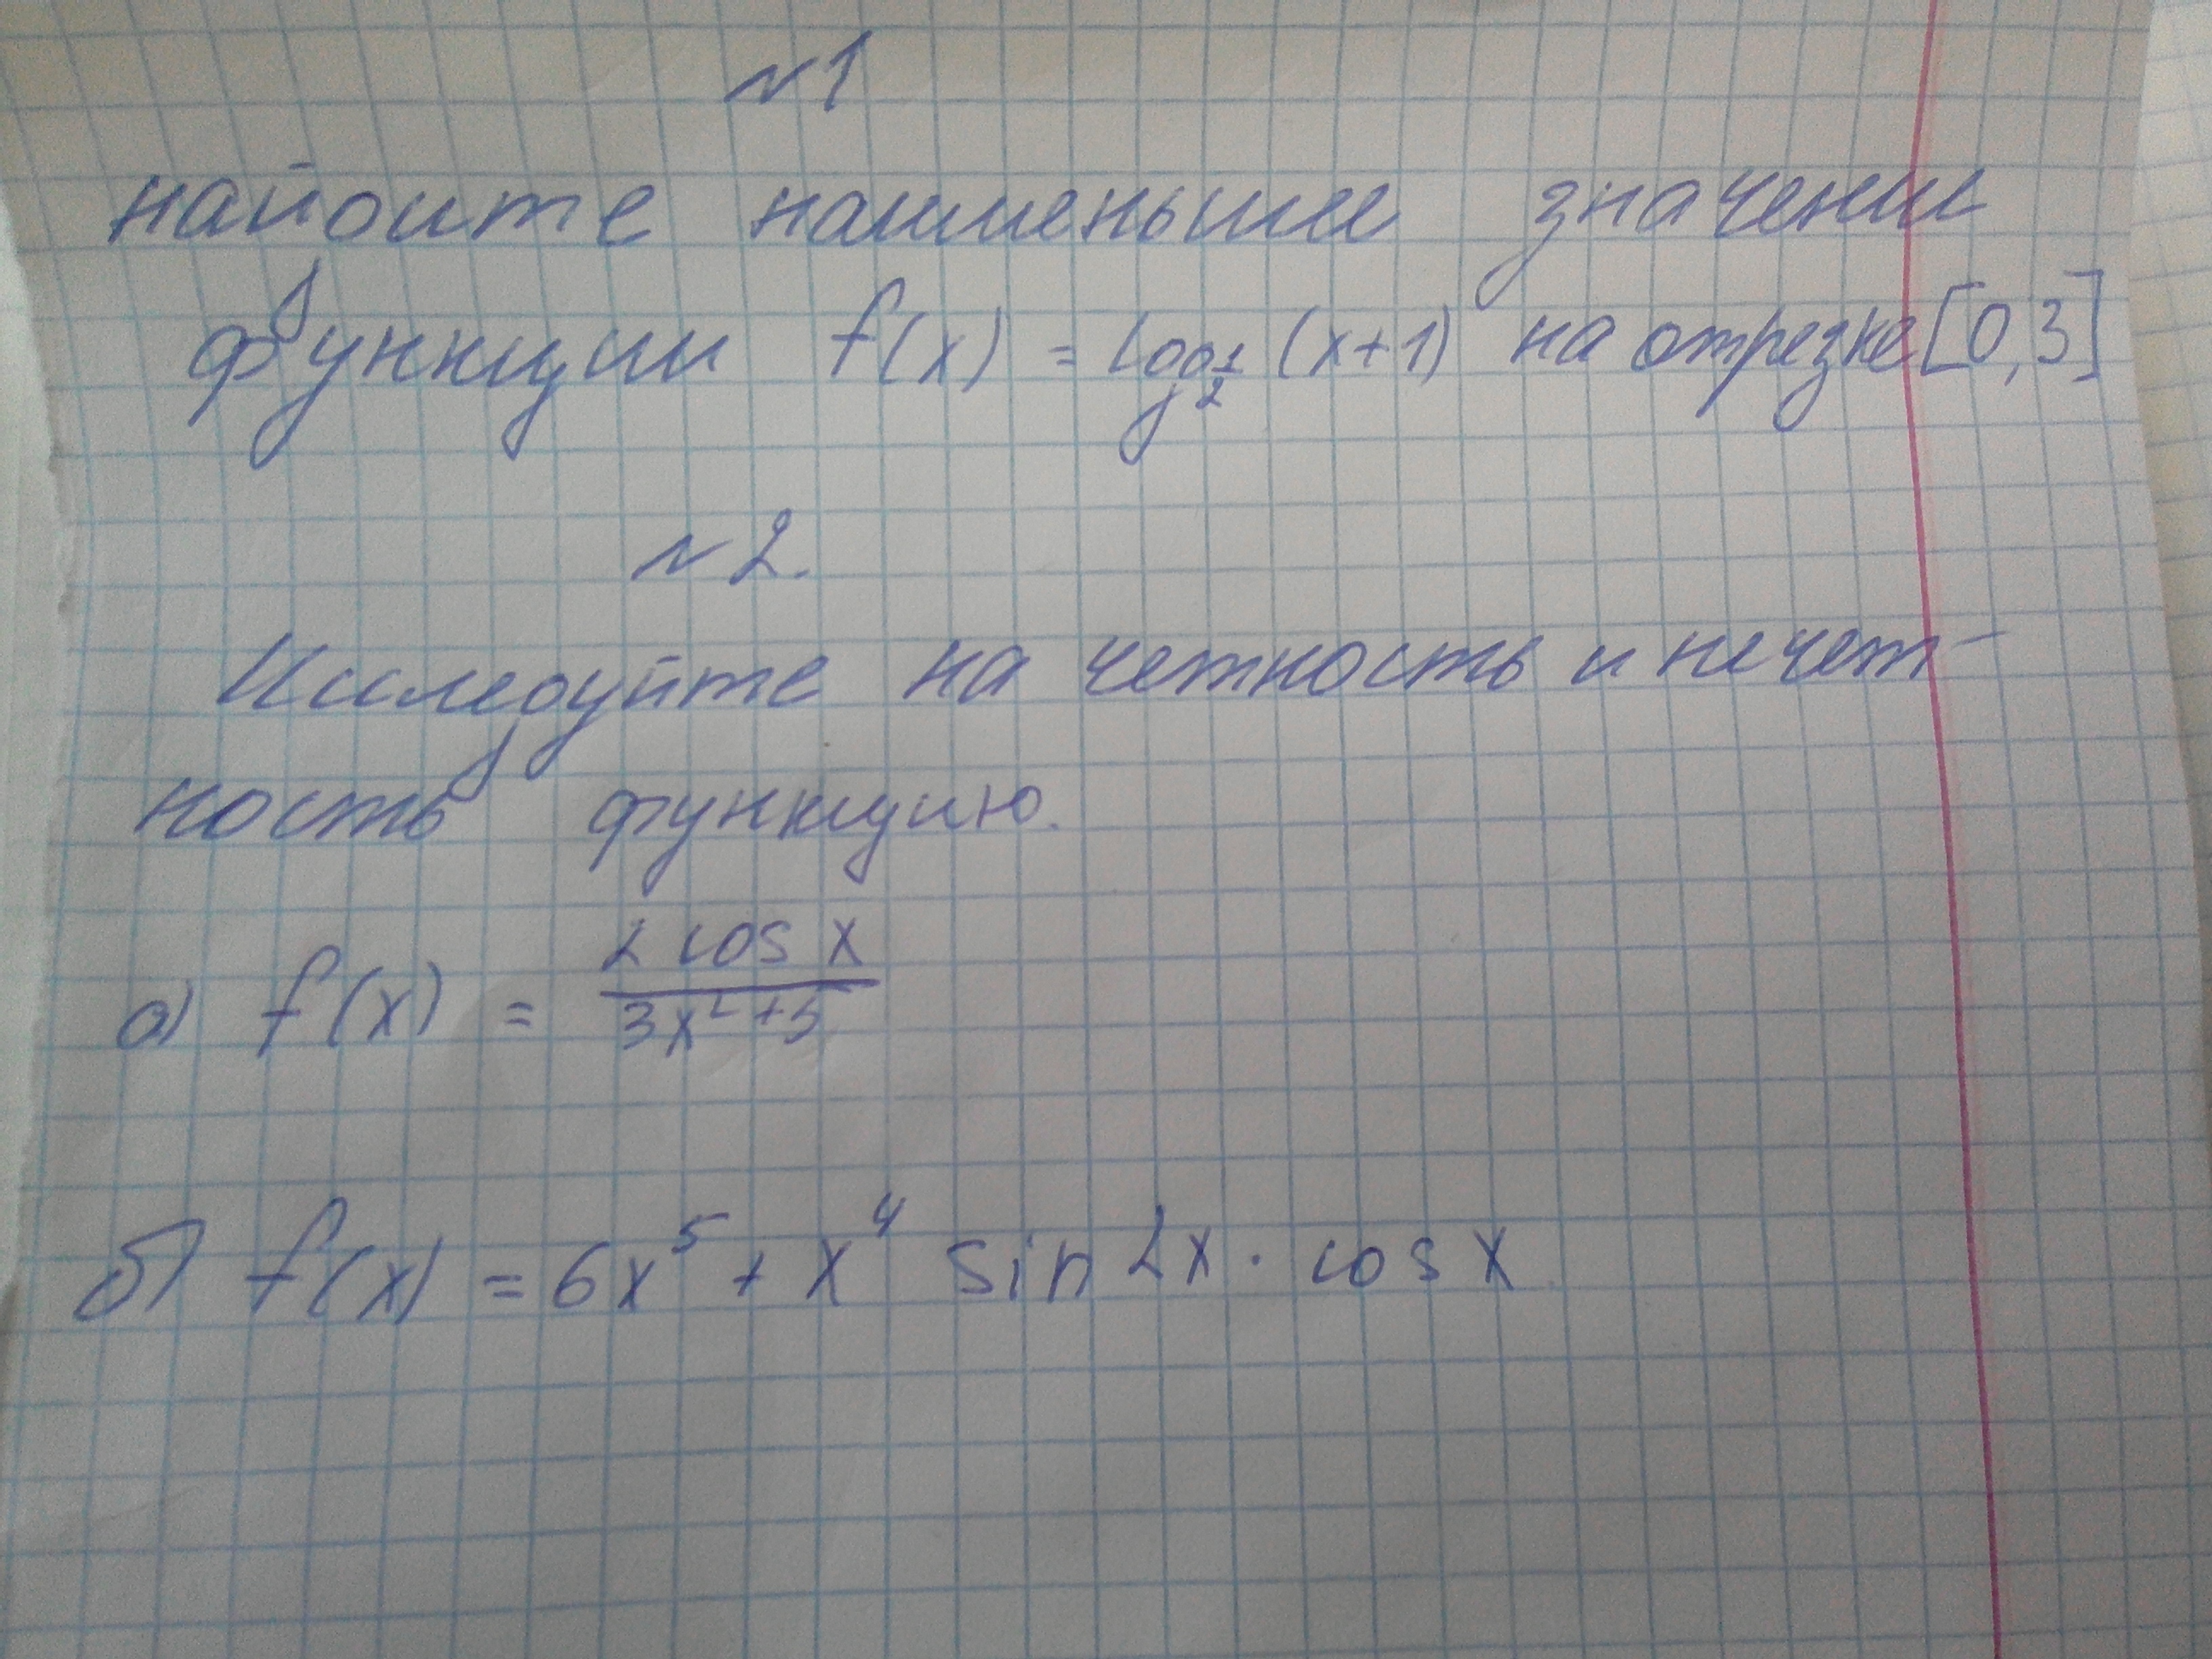 №1
найдите наименьшее значение
функции f(x) = log 1/2 (x+1) на отрезке [0,3]
№2.
Исследуйте на четность и нечет-
ность функцию.
а) f(x) = 2 cos x / 3x² + 5
б) f(x) = 6x⁵ + x⁴ sin 2x · cos x